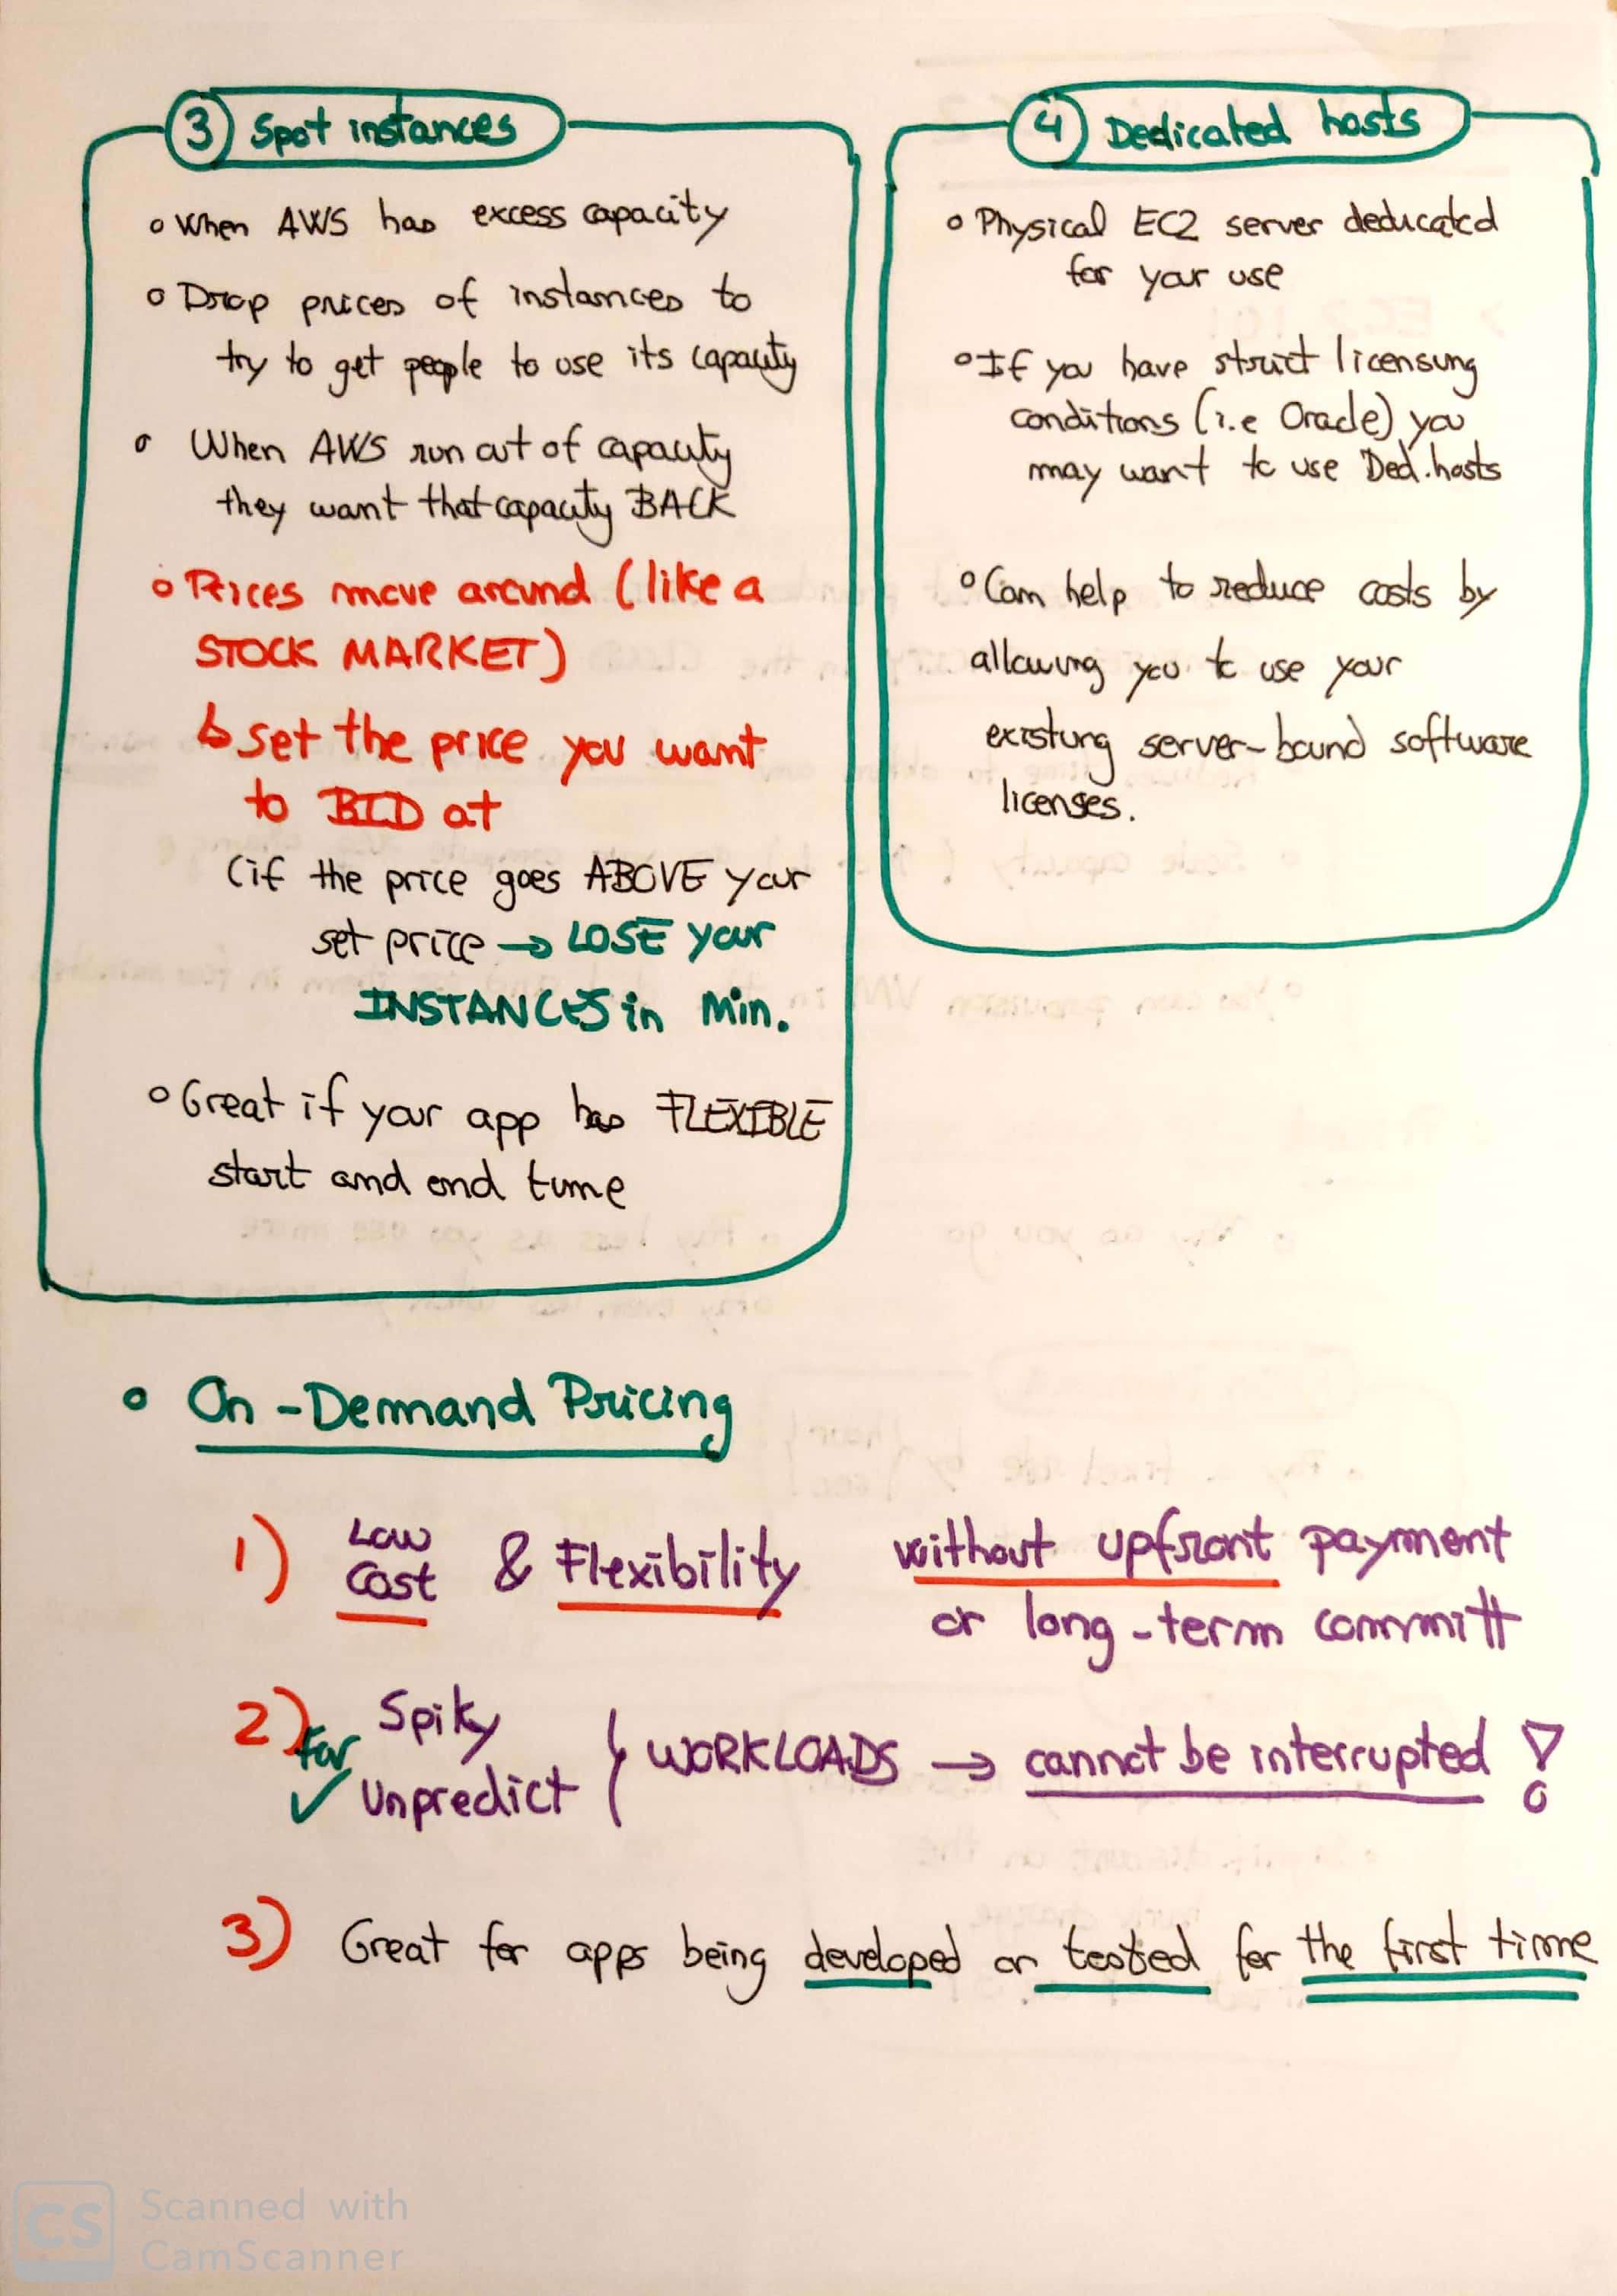 3 Spot instances
o When AWS has excess capacity
o Drop prices of instances to
try to get people to use its capacity
o When AWS run out of capacity
they want that capacity BACK
o Prices move around (like a
STOCK MARKET)
↳ set the price you want
to BID at
(if the price goes ABOVE your
set price → LOSE your
INSTANCES in Min.
o Great if your app has FLEXIBLE
start and end time
4 Dedicated hosts
o Physical EC2 server dedicated
for your use
o If you have strict licensing
conditions (i.e Oracle) you
may want to use Ded.hosts
o Can help to reduce costs by
allowing you to use your
existing server-bound software
licenses.
o On-Demand Pricing
1) Low Cost & Flexibility without upfront payment
or long-term committ
2) For ✓ Spiky Unpredict } WORKLOADS → cannot be interrupted !
3) Great for apps being developed or tested for the first time
CS Scanned with
CamScanner